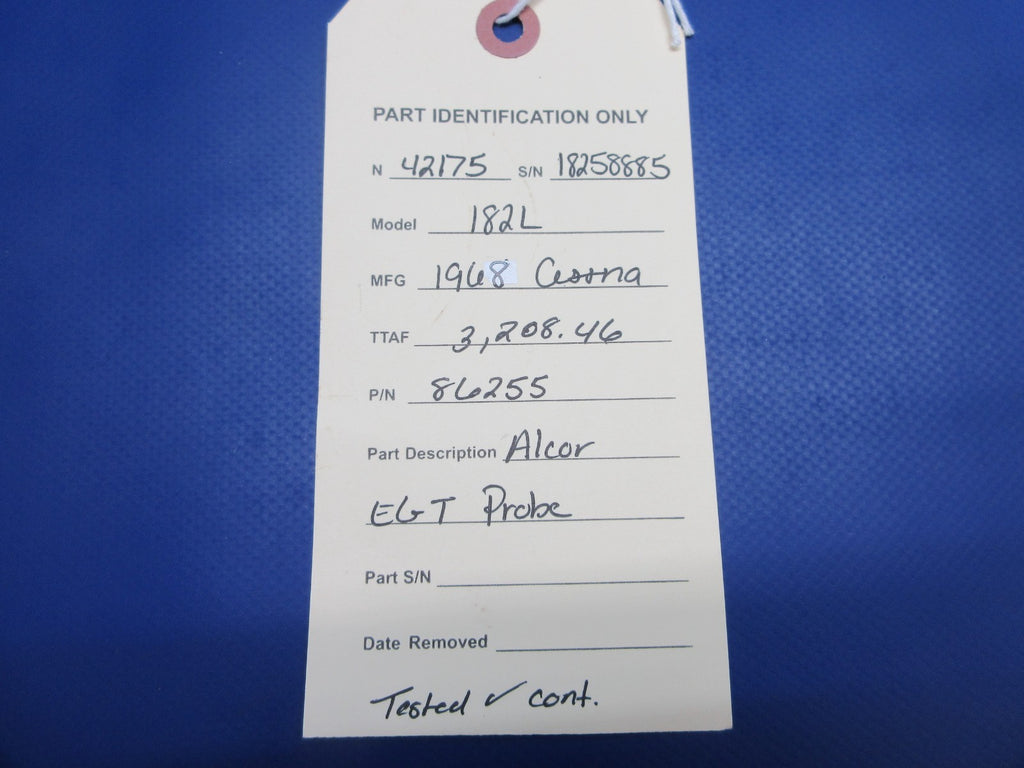 PART IDENTIFICATION ONLY
N 42175 S/N 18258885
Model 182L
MFG 1968 Cessna
TTAF 3,208.46
P/N 86255
Part Description Alcor
EGT Probe
Part S/N
Date Removed
Tested ✓ cont.